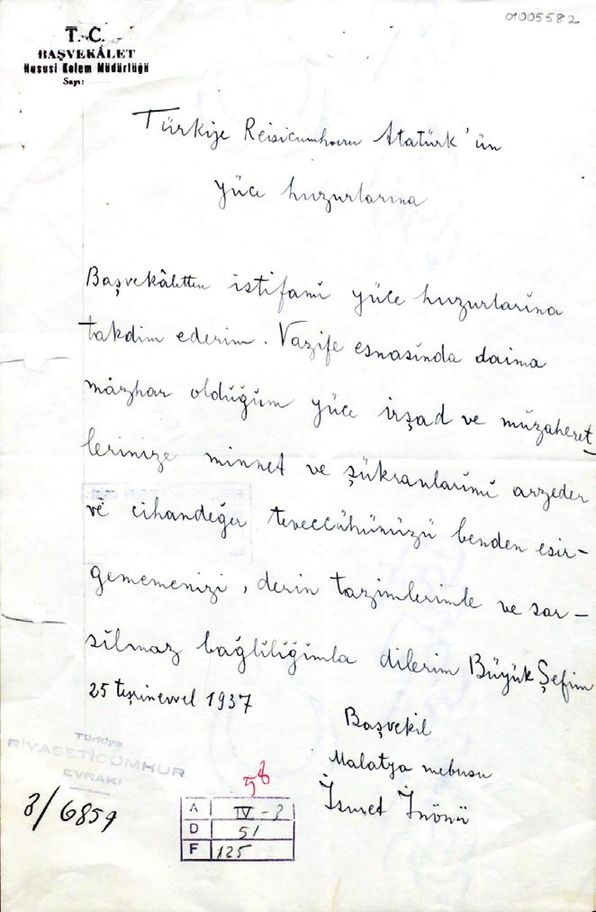 01005582
T. C.
BAŞVEKÂLET
Hususi Kalem Müdürlüğü
Sayı:
Türkiye Reisicumhuru Atatürk'ün
yüce huzurlarına
Başvekâletten istifamı yüce huzurlarına
takdim ederim. Vazife esnasında daima
mazhar olduğum yüce irşad ve müzaheret
lerinize minnet ve şükranlarımı arzeder
ve cihandeğer teveccühünüzü benden esir-
gememenizi, derin tazimlerimle ve sar-
sılmaz bağlılığımla dilerim Büyük Şefim
25 teşrinevvel 1937
Başvekil
Malatya mebusu
İsmet İnönü
Türkiye
RİYASETİCUMHUR
EVRAKI
3/6859
58
A IV-3
D 51
F 125